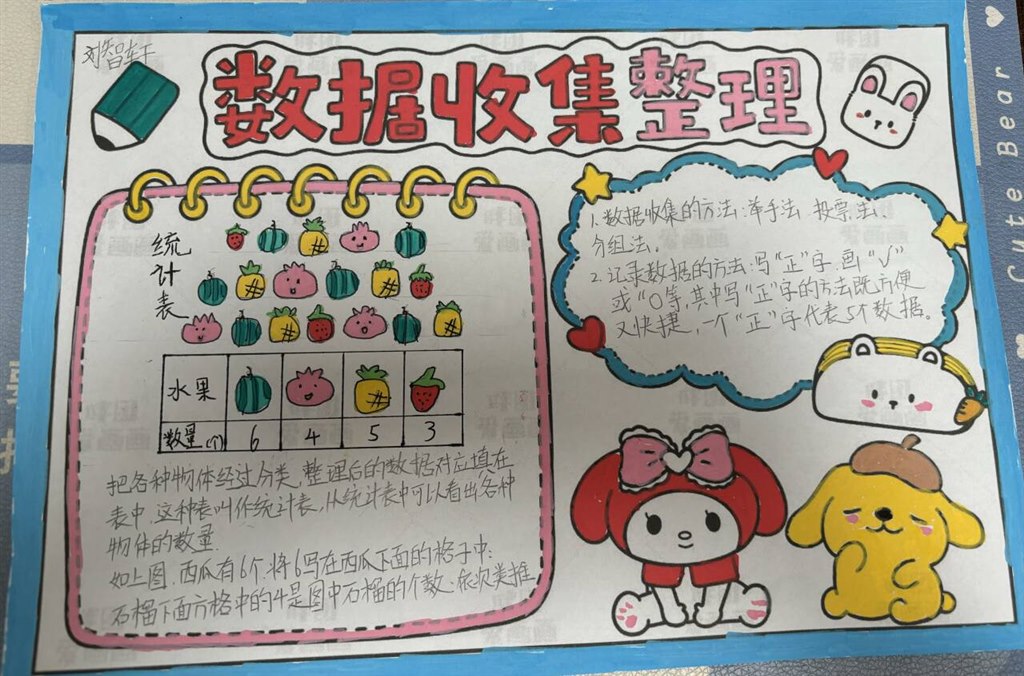 刘智轩
数据收集整理
统计表
水果
数量(个) 6 4 5 3
把各种物体经过分类,整理后的数据对应填在
表中,这种表叫作统计表,从统计表中可以看出各种
物体的数量.
如上图,西瓜有6个,将6写在西瓜下面的格子中;
石榴下面方格中的4是图中石榴的个数;依次类推
1.数据收集的方法:举手法、投票法、
分组法。
2.记录数据的方法:写“正”字,画“√”
或“○等,其中写“正”字的方法既方便
又快捷,一个“正”字代表5个数据。
Cute Bear